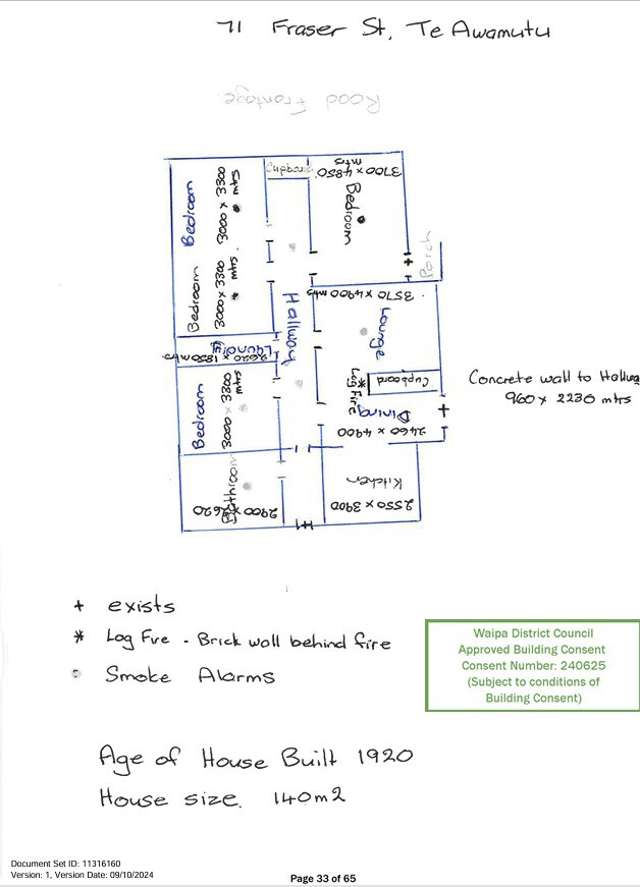 71 Fraser St, Te Awamutu
Road Frontage
Cupboard
3700 x 4850
mtrs
Bedroom
Bedroom
3000 x 3300
mtrs
Porch
Bedroom
3000 x 3300
mtrs.
Hallway
3570 x 4900 mtrs
Lounge
Laundry
2620 x 1850 mtrs
Log Fire
*
Cupboard
Concrete wall to Hallwa
960 x 2230 mtrs
Bedroom
3000 x 3300
mtrs
Dining
2460 x 4900
Bathroom
2900 x 2620
Kitchen
2550 x 3900
+ exists
* Log Fire - Brick wall behind fire
Smoke Alarms
Waipa District Council
Approved Building Consent
Consent Number: 240625
(Subject to conditions of
Building Consent)
Age of House Built 1920
House size. 140m2
Document Set ID: 11316160
Version: 1, Version Date: 09/10/2024
Page 33 of 65